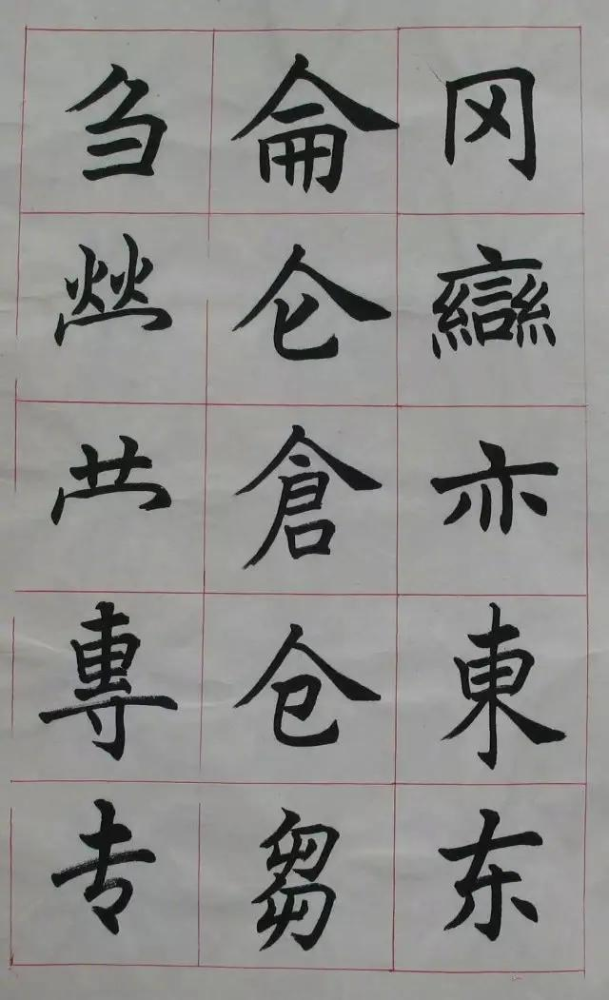 冈䜌亦東东
侖仑倉仓芻
刍𤇾𫇦專专